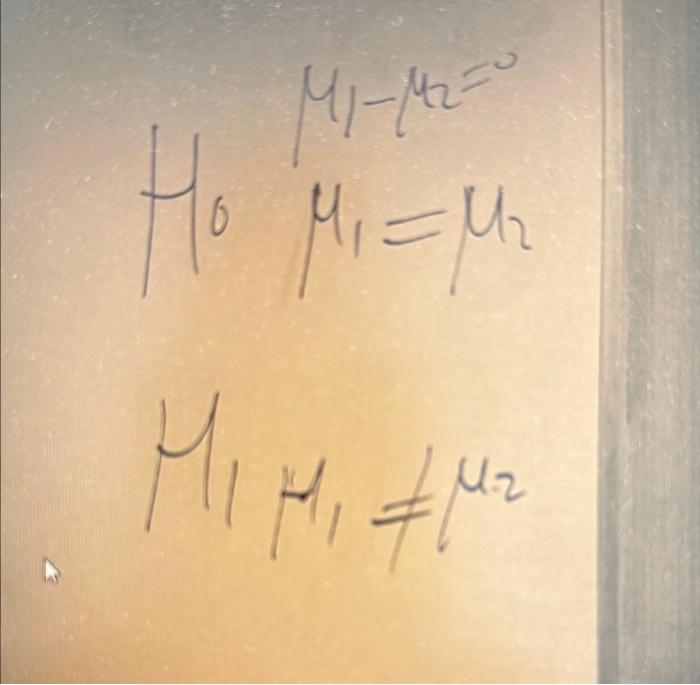 μ₁-μ₂=0
H₀ μ₁=μ₂
H₁ μ₁≠μ₂